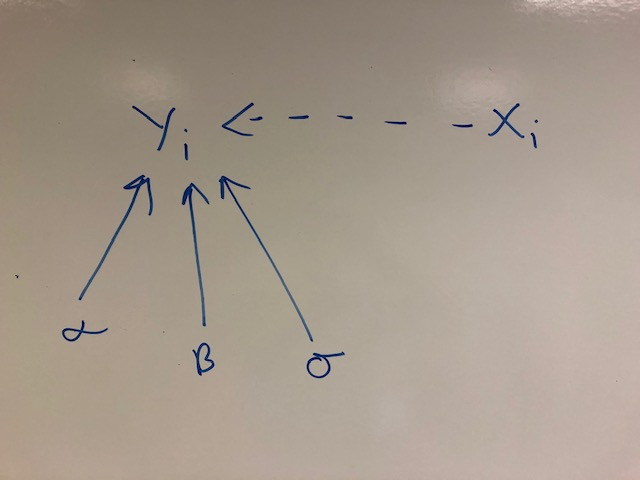 Yi <- - - - - Xi
α β σ